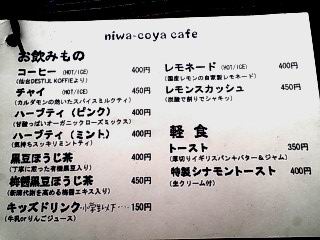 niwa-coya cafe
お飲みもの
コーヒー (HOT/ICE) 400円
(仙台DESTIJL KOFFIEより)
チャイ (HOT/ICE) 450円
(カルダモンの効いたスパイスミルクティ)
ハーブティ (ピンク) 400円
(甘酸っぱいオーガニックローズミックス)
ハーブティ (ミント) 400円
(気持ちスッキリミントティ)
黒豆ほうじ茶 400円
(丁寧に煎った有機黒豆入り)
梅醤黒豆ほうじ茶 450円
(新陳代謝を高める梅醤エキス入り)
キッズドリンク 小学生以下… 150円
(牛乳orりんごジュース)
レモネード (HOT/ICE) 400円
(国産レモンの自家製レモネード)
レモンスカッシュ 450円
(炭酸で割りでシャキッ)
軽 食
トースト 350円
(厚切りイギリスパン+バター&ジャム)
特製シナモントースト 400円
(生クリーム付)